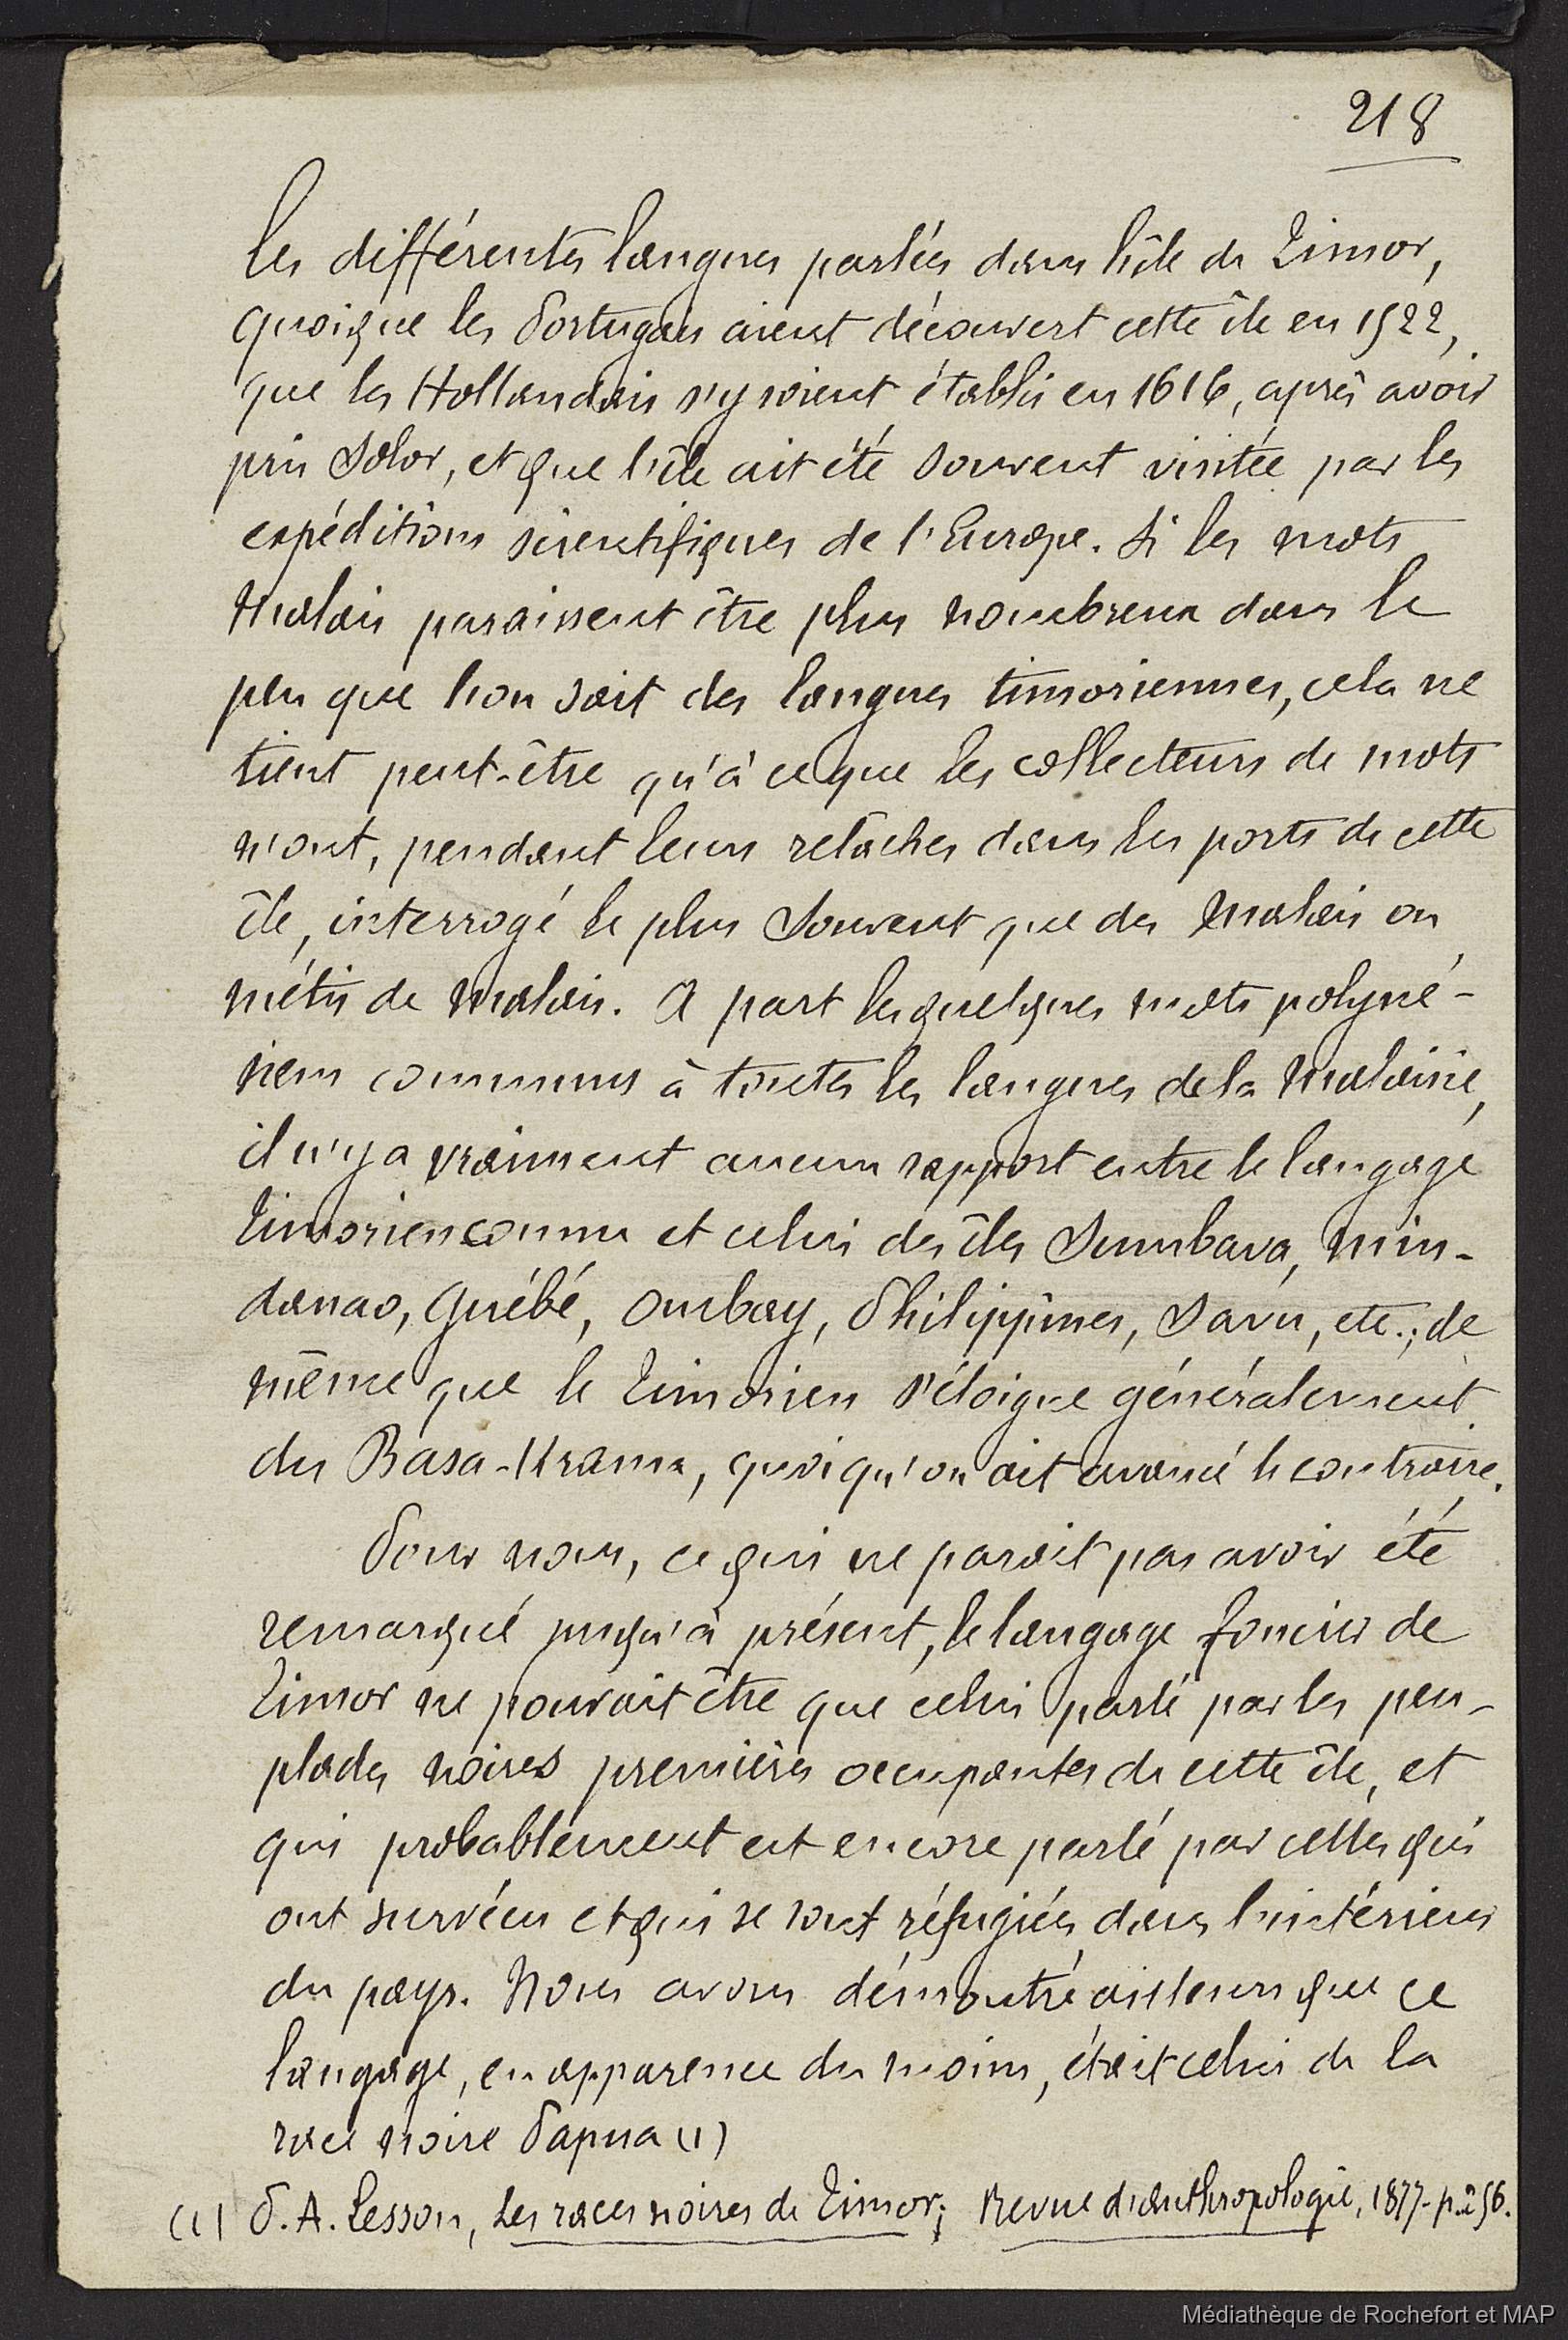 218
les différentes langues parlées dans l'île de Timor,
quoique les Portugais aient découvert cette île en 1522,
que les Hollandais s'y soient établis en 1616, après avoir
pris Solor, et que l'île ait été souvent visitée par les
expéditions scientifiques de l'Europe. Si les mots
malais paraissent être plus nombreux dans le
peu que l'on sait des langues timoriennes, cela ne
tient peut-être qu'à ce que les collecteurs de mots
n'ont, pendant leurs relâches dans les ports de cette
île, interrogé le plus souvent que des malais ou
métis de malais. A part les quelques mots polyné-
siens communs à toutes les langues de la Malaisie,
il n'y a vraiment aucun rapport entre le langage
Timorien connu et celui des îles Sumbava, Min-
danao, Guébé, Ombay, Philippines, Savu, etc.; de
même que le Timorien s'éloigne généralement
du Basa-Krama, quoiqu'on ait avancé le contraire.
Pour nous, ce qui ne parait pas avoir été
remarqué jusqu'à présent, le langage foncier de
Timor ne pouvait être que celui parlé par les peu-
plades noires premières occupantes de cette île, et
qui probablement est encore parlé par celles qui
ont survécu et qui se sont réfugiées dans l'intérieur
du pays. Nous avons démontré ailleurs que ce
langage, en apparence du moins, était celui de la
race noire Papua (1)
(1) P. A. Lesson, Les races noires de Timor; Revue d'anthropologie, 1877- p. 256.
Médiathèque de Rochefort et MAP